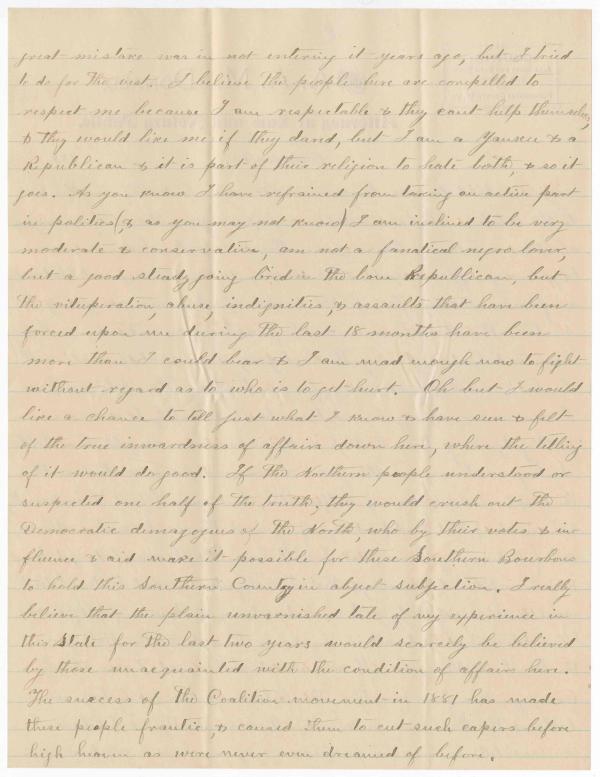 great mistake was in not entering it years ago, but I tried
to do for the best. I believe the people here are compelled to
respect me because I am respectable & they cant help themselves,
& they would like me if they dard, but I am a Yankee & a
Republican & it is part of their religion to hate both, & so it
goes. As you know I have refrained from taking an active part
in politics (& as you may not know) I am inclined to be very
moderate & conservative, am not a fanatical negro lover,
but a good steady going bred in the bone Republican, but
the vituperation, abuse, indignities, & assaults that have been
forced upon me during the last 18 months have been
more than I could bear & I am mad enough now to fight
without regard as to who is to get hurt. Oh but I would
like a chance to tell just what I know & have seen & felt
of the true inwardness of affairs down here, where the telling
of it would do good. If the Northern people understood or
suspected one half of the truth, they would crush out the
Democratic demagogues of the North, who by their votes & in-
fluence & aid make it possible for these Southern Bourbons
to hold this Southern County in abject subjection. I really
believe that the plain unvarnished tale of my experience in
this State for the last two years would scarcely be believed
by those unacquainted with the condition of affairs here.
The success of the Coalition movement in 1881 has made
these people frantic, & caused them to cut such capers before
high heaven as were never even dreamed of before.